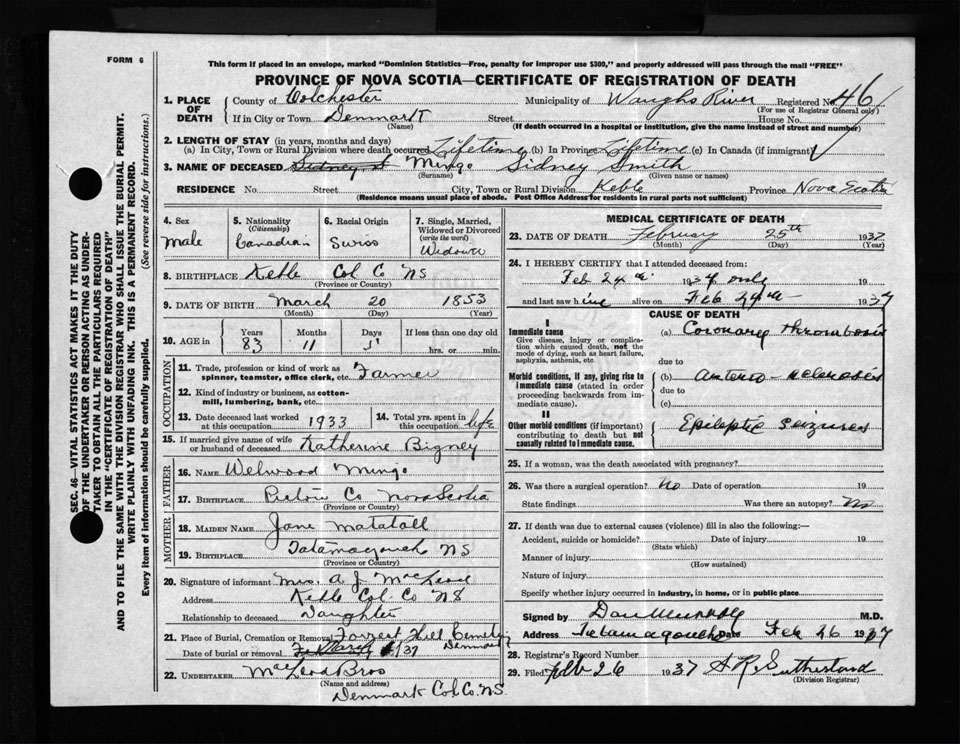 FORM 6
This form if placed in an envelope, marked "Dominion Statistics—Free, penalty for improper use $300," and properly addressed will pass through the mail "FREE"
PROVINCE OF NOVA SCOTIA—CERTIFICATE OF REGISTRATION OF DEATH
1. PLACE OF DEATH County of Colchester Municipality of Waughs River Registered No. 46
(For use of Registrar General only)
If in City or Town Denmark Street House No.
(Name) (If death occurred in a hospital or institution, give the name instead of street and number)
2. LENGTH OF STAY (in years, months and days)
(a) In City, Town or Rural Division where death occurred Lifetime (b) In Province Lifetime (c) In Canada (if immigrant)
3. NAME OF DECEASED Mingo Sidney Smith
(Surname) (Given name or names)
RESIDENCE No. Street City, Town or Rural Division Keble Province Nova Scotia
(Residence means usual place of abode. Post Office Address for residents in rural parts not sufficient)
SEC. 46—VITAL STATISTICS ACT MAKES IT THE DUTY
OF THE UNDERTAKER OR PERSON ACTING AS UNDER-
TAKER TO OBTAIN ALL THE PARTICULARS REQUIRED
IN THE "CERTIFICATE OF REGISTRATION OF DEATH"
AND TO FILE THE SAME WITH THE DIVISION REGISTRAR WHO SHALL ISSUE THE BURIAL PERMIT.
WRITE PLAINLY WITH UNFADING INK. THIS IS A PERMANENT RECORD.
Every item of information should be carefully supplied. (See reverse side for instructions.)
4. Sex Male
5. Nationality (Citizenship) Canadian
6. Racial Origin Swiss
7. Single, Married, Widowed or Divorced (write the word) Widower
8. BIRTHPLACE Keble Col Co NS
(Province or Country)
9. DATE OF BIRTH March 20 1853
(Month) (Day) (Year)
10. AGE in Years 83 Months 11 Days 5 If less than one day old hrs. or min.
OCCUPATION
11. Trade, profession or kind of work as spinner, teamster, office clerk, etc. Farmer
12. Kind of industry or business, as cotton-mill, lumbering, bank, etc.
13. Date deceased last worked at this occupation 1933
14. Total yrs. spent in this occupation life
15. If married give name of wife or husband of deceased Katherine Bigney
FATHER
16. NAME Welwood Mingo
17. BIRTHPLACE Pictou Co Nova Scotia
(Province or Country)
MOTHER
18. MAIDEN NAME Jane Matatall
19. BIRTHPLACE Tatamagouche NS
(Province or Country)
20. Signature of informant Mrs. A J MacLeod
Address Keble Col Co NS
Relationship to deceased Daughter
21. Place of Burial, Cremation or Removal Forrest Hill Cemetery Denmark
Date of burial or removal March 1937
22. UNDERTAKER MacLeod Bros
(Name and address)
Denmark Col Co. NS.
MEDICAL CERTIFICATE OF DEATH
23. DATE OF DEATH February 25th 1937
(Month) (Day) (Year)
24. I HEREBY CERTIFY that I attended deceased from:
Feb 24th 1937 only 19
and last saw him alive on Feb 24th 1937
CAUSE OF DEATH
I
Immediate cause
Give disease, injury or complication which caused death, not the mode of dying, such as heart failure, asphyxia, asthenia, etc.
(a) Coronary thrombosis
due to
Morbid conditions, if any, giving rise to immediate cause (stated in order proceeding backwards from immediate cause).
(b) Arterio-sclerosis
due to
(c)
II
Other morbid conditions (if important) contributing to death but not causally related to immediate cause.
Epileptic seizures
25. If a woman, was the death associated with pregnancy?
26. Was there a surgical operation? No Date of operation 19
State findings Was there an autopsy? No
27. If death was due to external causes (violence) fill in also the following:—
Accident, suicide or homicide? Date of injury 19
(State which)
Manner of injury
(How sustained)
Nature of injury
Specify whether injury occurred in industry, in home, or in public place
Signed by Dan Murray M.D.
Address Tatamagouche Date Feb 26 1937
28. Registrar's Record Number
29. Filed Feb 26 1937 A R Sutherland
(Division Registrar)